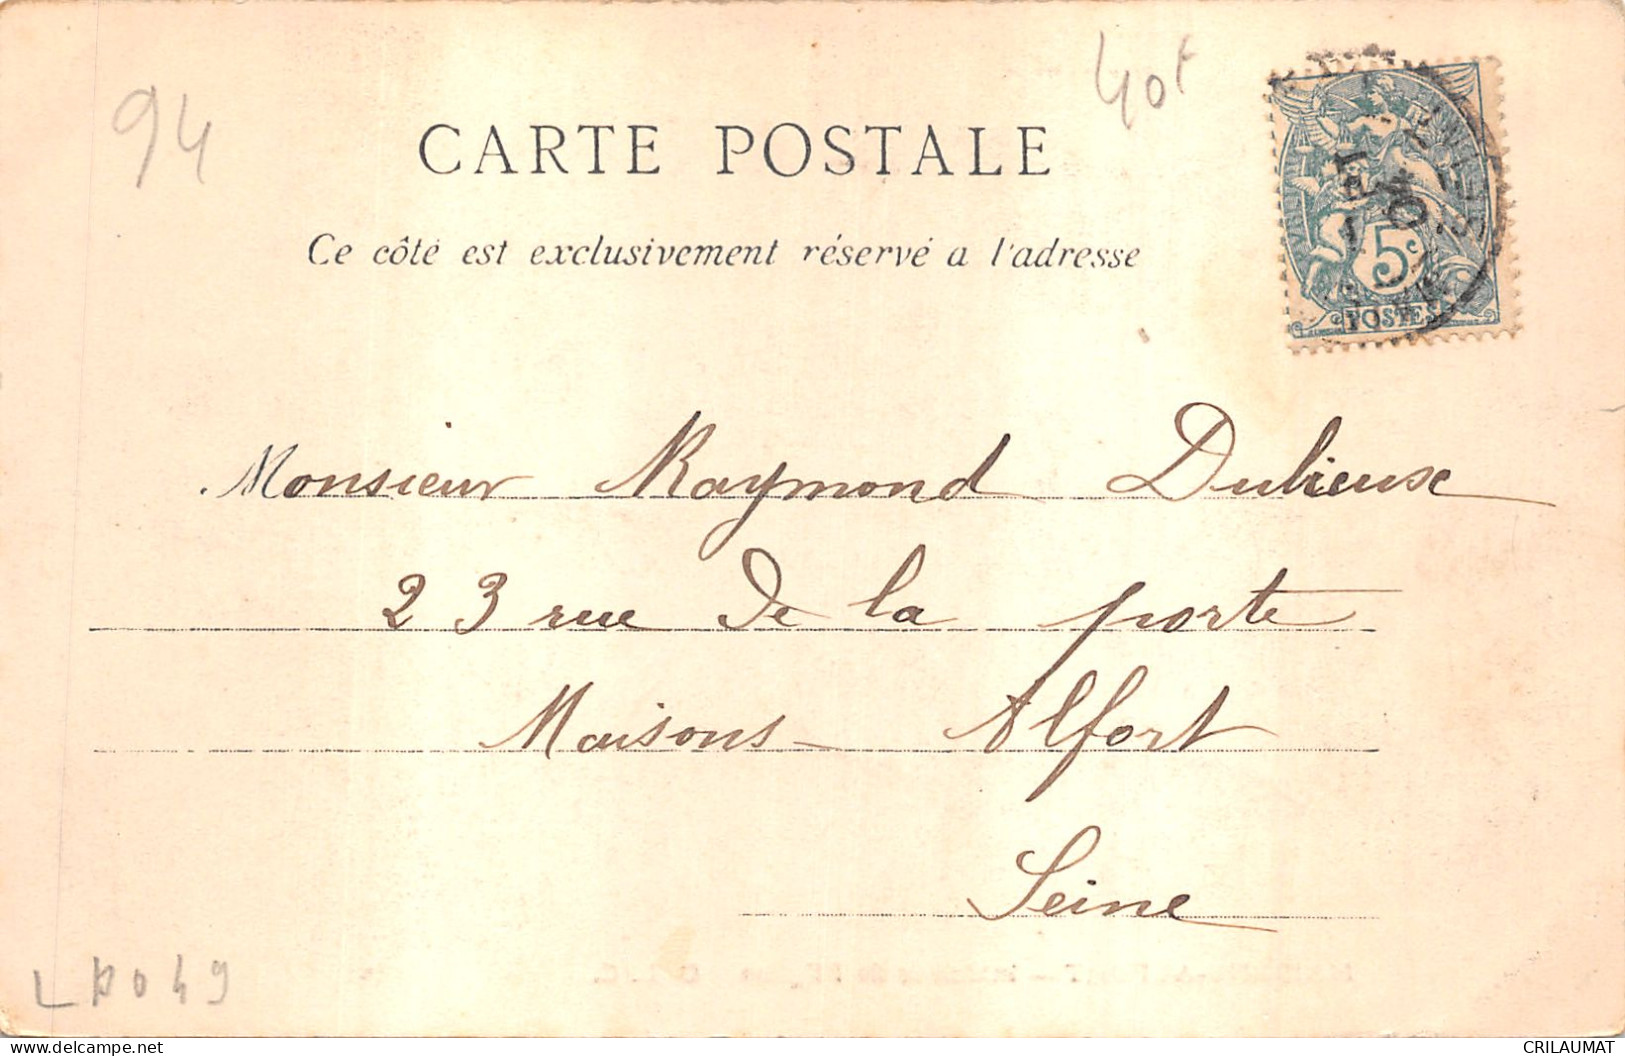 94
40f
CARTE POSTALE
Ce côté est exclusivement réservé a l'adresse
5c
POSTES
04
Monsieur Raymond Dubieuse
23 rue de la porte
Maisons-Alfort
Seine
LP049
CRILAUMAT